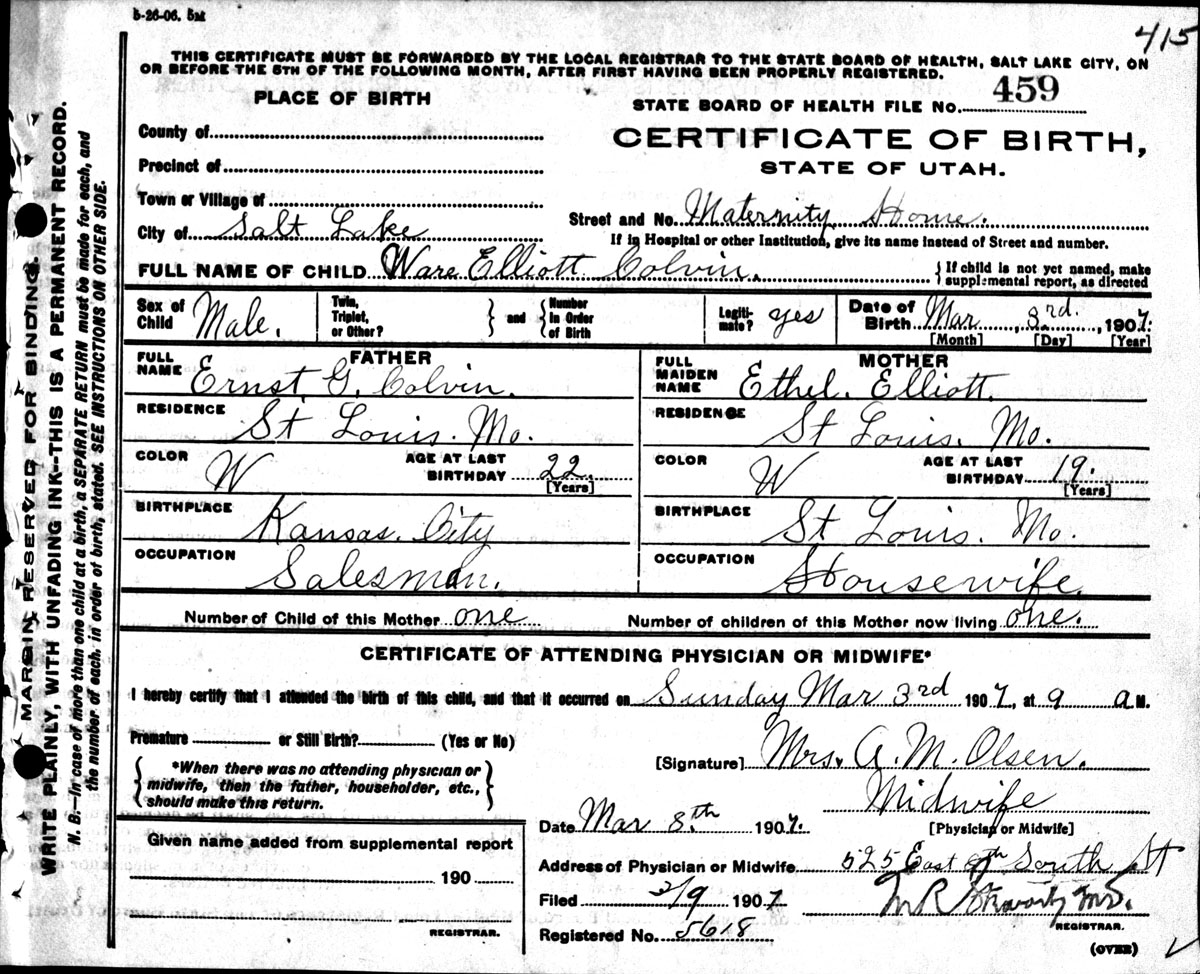 5-26-06. 5M
415
THIS CERTIFICATE MUST BE FORWARDED BY THE LOCAL REGISTRAR TO THE STATE BOARD OF HEALTH, SALT LAKE CITY, ON
OR BEFORE THE 5TH OF THE FOLLOWING MONTH, AFTER FIRST HAVING BEEN PROPERLY REGISTERED.
PLACE OF BIRTH
STATE BOARD OF HEALTH FILE NO. 459
County of
CERTIFICATE OF BIRTH,
Precinct of
STATE OF UTAH.
Town or Village of
City of Salt Lake
Street and No. Maternity Home.
If in Hospital or other Institution, give its name instead of Street and number.
FULL NAME OF CHILD Ware Elliott Colvin.
{ If child is not yet named, make
supplemental report, as directed
Sex of Child Male.
Twin, Triplet, or Other? } and { Number in Order of Birth
Legiti-mate? yes
Date of Birth Mar, 3rd, 1907.
[Month] [Day] [Year]
FATHER
FULL NAME Ernst G. Colvin.
RESIDENCE St Louis. Mo.
COLOR W AGE AT LAST BIRTHDAY 22. [Years]
BIRTHPLACE Kansas. City
OCCUPATION Salesman.
MOTHER
FULL MAIDEN NAME Ethel. Elliott.
RESIDENCE St Louis. Mo.
COLOR W AGE AT LAST BIRTHDAY 19. [Years]
BIRTHPLACE St Louis. Mo.
OCCUPATION Housewife.
Number of Child of this Mother one Number of children of this Mother now living one.
CERTIFICATE OF ATTENDING PHYSICIAN OR MIDWIFE*
I hereby certify that I attended the birth of this child, and that it occurred on Sunday Mar 3rd 1907, at 9 a M.
Premature or Still Birth? (Yes or No)
{ *When there was no attending physician or
midwife, then the father, householder, etc.,
should make this return. }
[Signature] Mrs. A. M. Olsen.
Midwife
[Physician or Midwife]
Date Mar 8.th 1907.
Given name added from supplemental report
190
REGISTRAR.
Address of Physician or Midwife 525 East South St
Filed 1907
MD.
REGISTRAR.
Registered No. 5618
(OVER)
MARGIN RESERVED FOR BINDING.
WRITE PLAINLY, WITH UNFADING INK--THIS IS A PERMANENT RECORD.
N. B.--In case of more than one child at a birth, a SEPARATE RETURN must be made for each, and
the number of each, in order of birth, stated. SEE INSTRUCTIONS ON OTHER SIDE.